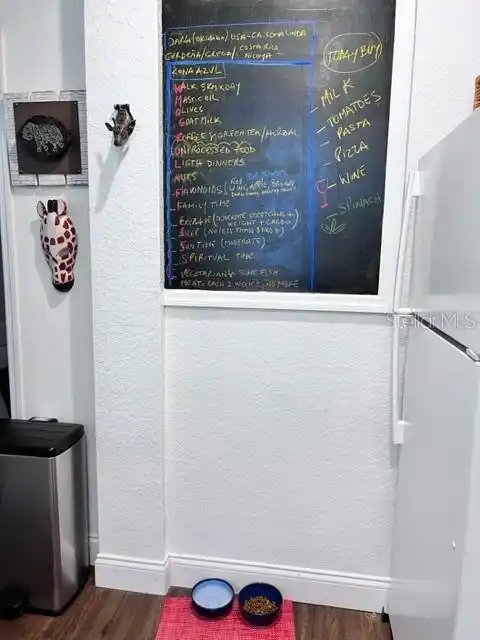 JAPÓN (OKINAWA) / USA-CA. LOMA LINDA
CERDEÑA/GRECIA/ COSTA RICA
NICOYA
ZONA AZUL
WALK 5KMXDAY
MASTIC OIL
OLIVES
GOAT MILK
COFFEE & GREEN TEA/HERBAL
UNPROCESSED FOOD
LIGTH DINNERS
NUTS
FLAVONOIDS
FAMILY TIME
EXERCISE (MODERATE STRETCHING +
WEIGHT + CARDIO)
SLEEP (NO LESS THAN
SUN TIME (MODERATE)
SPIRITUAL TIME
VEGETARIAN & SOME FISH
MEAT: EACH 2 WEEKS, NO MORE
TODAY BUY
- MILK
- TOMATOES
- PASTA
- PIZZA
- WINE
- SPINACH
StellarMLS